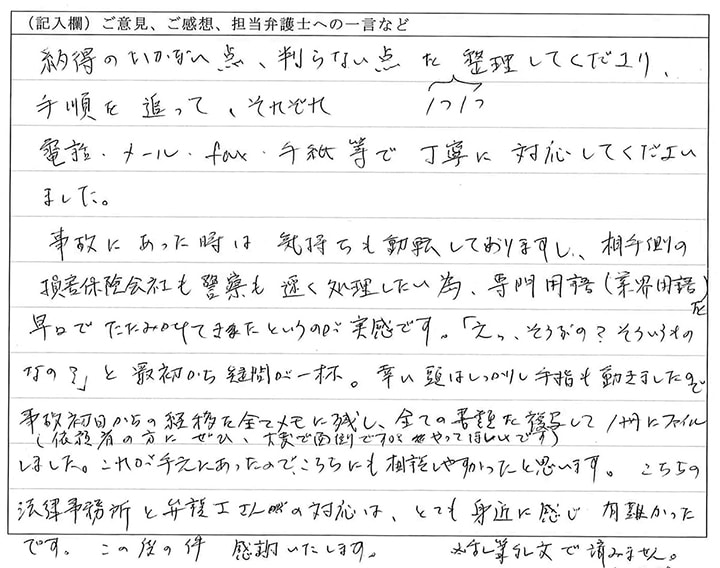 （記入欄）ご意見、ご感想、担当弁護士への一言など
納得のいかない点、判らない点を整理してくださり、
手順を追って、それぞれ 1つ1つ
電話・メール・fax・手紙等で丁寧に対応してください
ました。
事故にあった時は気持ちも動転しておりますし、相手側の
損害保険会社も警察も速く処理したい為、専門用語（業界用語）を
早口でたたみかけてきたというのが実感です。「えっ、そうなの？そういうもの
なの？」と最初から疑問が一杯。幸い頭はしっかりし手指も動きましたので
事故初日からの経移を全てメモに残し、全ての書類を複写して1冊にファイル
（依頼者の方にぜひ、大変で面倒ですがやってほしいです）
しました。これが手元にあったので、こちらにも相談しやすかったと思います。こちらの
法律事務所と弁護士さんの対応は、とても身近に感じ有難かった
です。この後の件 感謝いたします。 ※乱筆乱文で済みません。